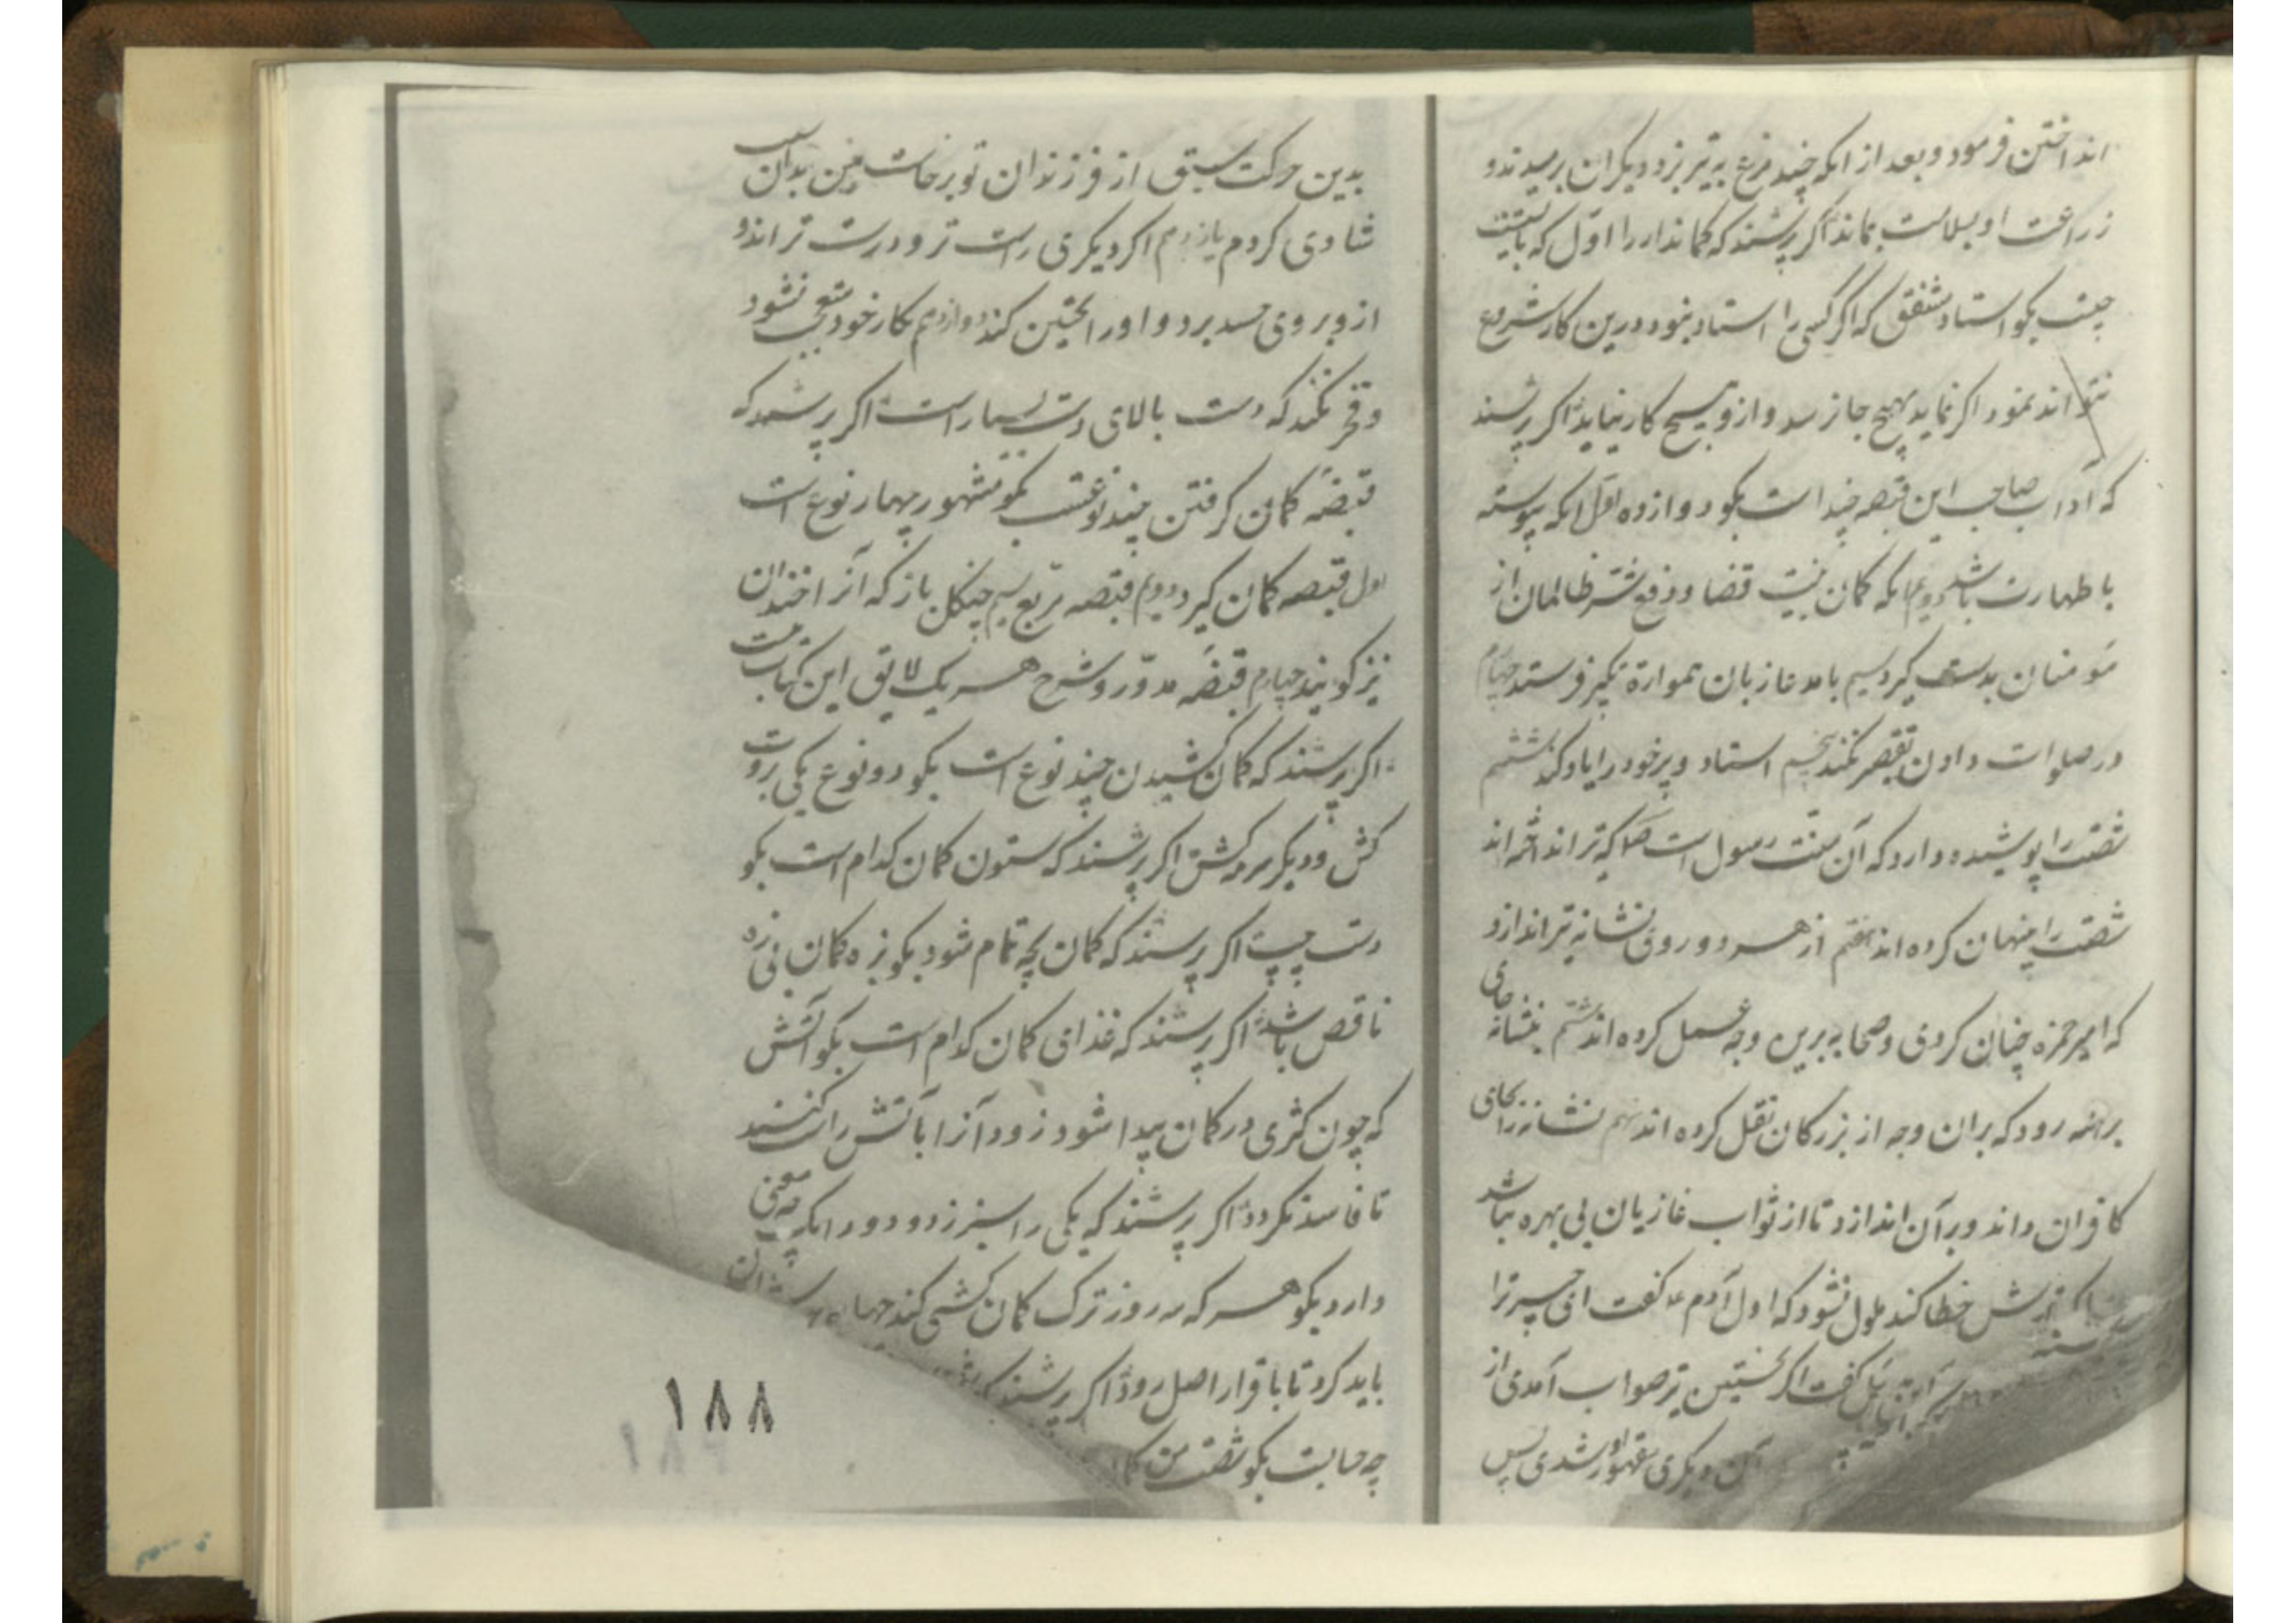 انداختن فرمود و بعد از انکه چند مرغ به تیر بزد دیکران برمیدند و
زراعت او بسلامت بماند اکر پرسند که کماندار را اول که بایست
چیست بکو استاد مشفق که اکر کسی را استاد نبود درین کار شروع
نتواند نمود اکر نماید بهیچ جا نرسد و ازو هیچ کار نیاید اکر پرسند
که آداب صاحب این قبضه چند است بکو دوازده اول انکه پیوسته
با طهارت باشد دویم انکه کمان بنیت قضا و دفع شر ظالمان از
مؤمنان بدست کیرد سیم بامد غازیان همواره تکبیر فرستد چهارم
در صلوات دادن تقصیر نکند پنجم استاد و پیر خود را یاد کند ششم
شصت را پوشیده دارد که آن سنت رسول است که تیر انداخته اند
شصت را پنهان کرده اند هفتم از هر دو روی نشانه تیر اندازد
که امیر حمزه چنان کردی و صحابه برین وجه عمل کرده اند هشتم بنشانه جای
برهنه رود که بران وجه از بزرکان نقل کرده اند نهم نشانه را بجای
کافران داند و بر آن اندازد تا از ثواب غازیان بی بهره نباشد
اکر تیرش خطا کند ملول نشود که اول آدم ع کفت ای جبرئیل چرا
جبرئیل کفت اکر نخستین تیر صواب آمدی از
آن دیکری مقهور شدی پس
بدین حرکت سبق از فرزندان تو برخاست من بدان سبب
شادی کردم یازدهم اکر دیکری راست تر و درست تر اندازد
از وی بروی حسد نبرد و او را تحسین کند دوازدهم بکار خود متعجب نشود
و فخر نکند که دست بالای دست بسیار است اکر پرسند که
قبضه کمان کرفتن چند نوعست بکو مشهور چهار نوع است
اول قبضه کمان کیر دویم قبضه مربع سیم چنکل باز که آنرا خندان
نیز کویند چهارم قبضه مدور و شرح هر یک لایق این کتاب نیست
اکر پرسند که کمان کشیدن چند نوع است بکو دو نوع یکی روت
کش و دیکر مرد کش اکر پرسند که ستون کمان کدام است بکو
دست چپ اکر پرسند که کمان بچه تمام شود بکو بزه کمان بی زه
ناقص باشد اکر پرسند که غذای کمان کدام است بکو آتش
که چون کژی در کمان پیدا شود زود آنرا بآتش راست کنند
تا فاسد نکردد اکر پرسند که یکی را سبز زد و دو را انکه چه معنی
دارد بکو هر که سه روز ترک کمان کشی کند
باید کرد تا با قرار اصل رود اکر پرسند که
چه حسابست بکو شصت من
۱۸۸